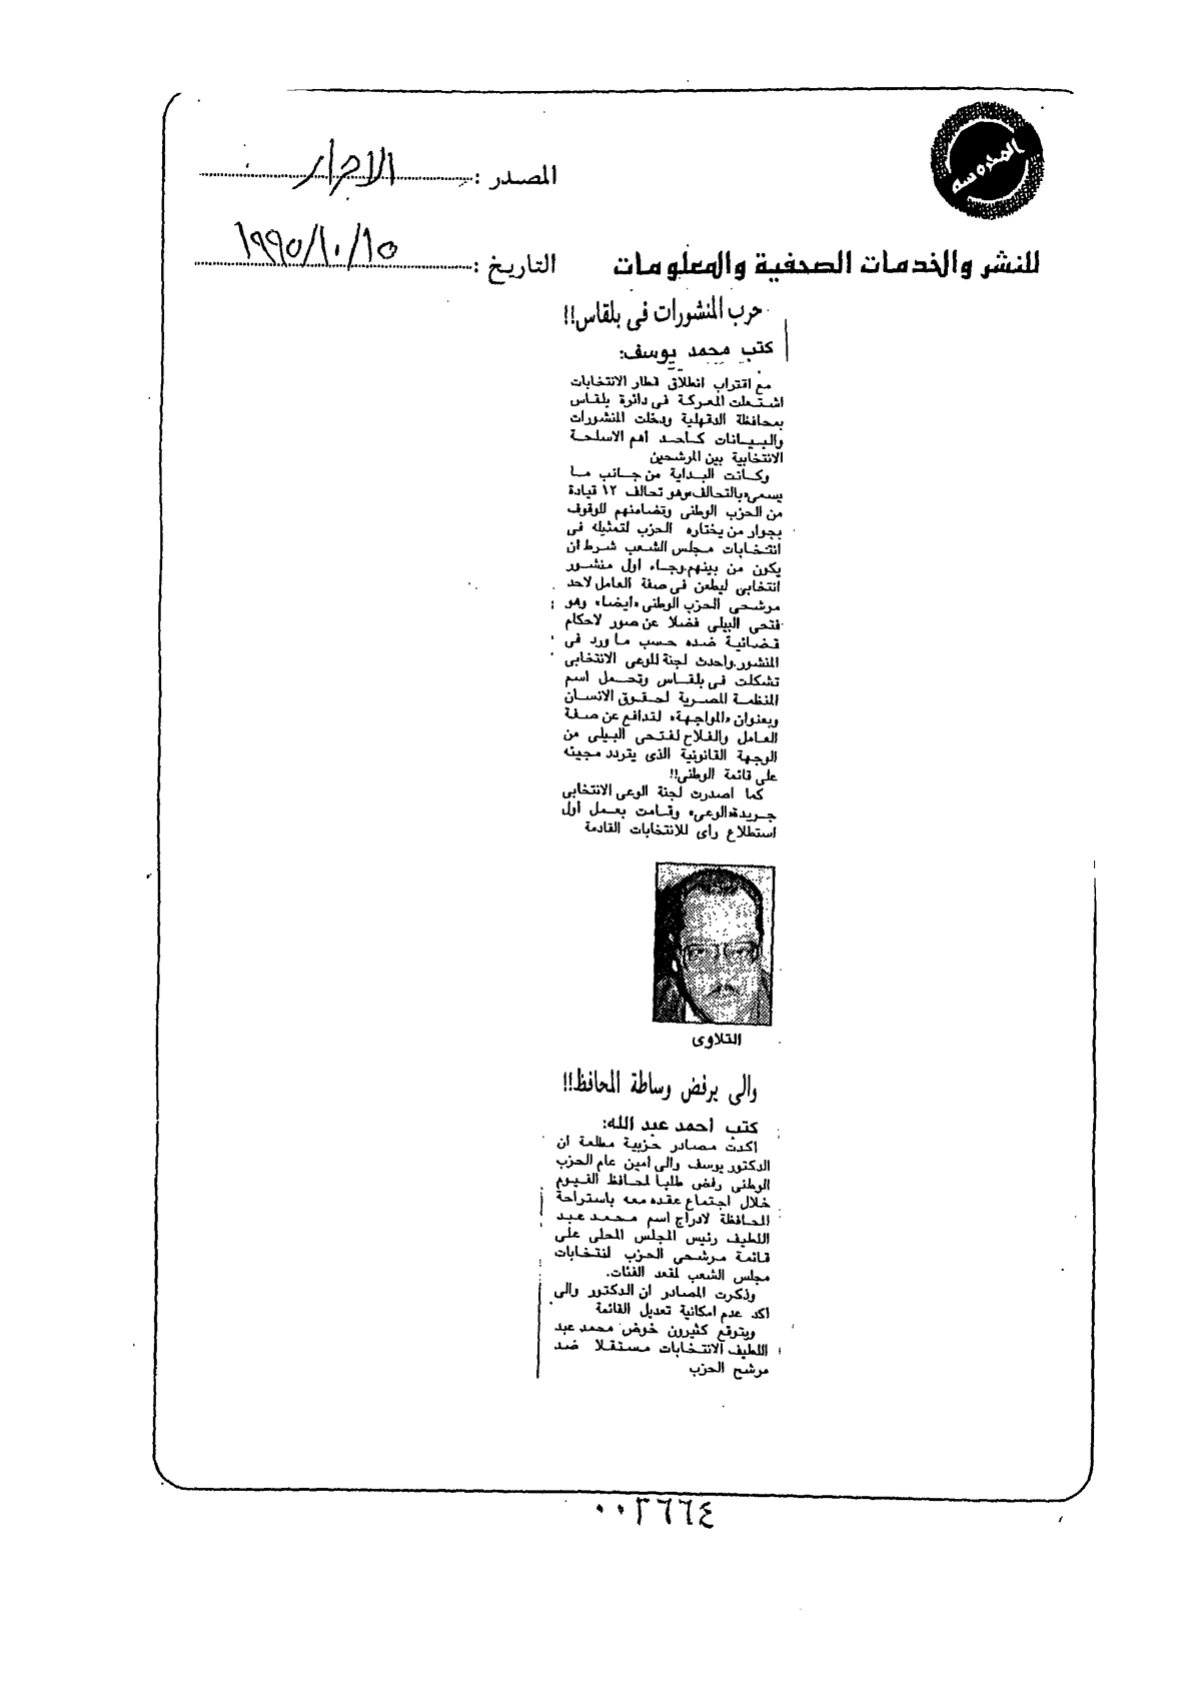 المحروسة
المصدر : الاحرار
للنشر والخدمات الصحفية والمعلومات
التاريخ : ١٩٩٥/١٠/١٥
حرب المنشورات فى بلقاس!!
كتب محمد يوسف:
مع اقتراب انطلاق قطار الانتخابات
اشتعلت المعركة فى دائرة بلقاس
بمحافظة الدقهلية ودخلت المنشورات
والبيانات كأحد أهم الاسلحة
الانتخابية بين المرشحين
وكانت البداية من جانب ما
يسمى «بالتحالف» وهو تحالف ١٢ قيادة
من الحزب الوطنى وتضامنهم للوقوف
بجوار من يختاره الحزب لتمثيله فى
انتخابات مجلس الشعب شرط ان
يكون من بينهم.وجاء اول منشور
انتخابى ليطعن فى صفة العامل لاحد
مرشحى الحزب الوطنى «أيضا» وهو
فتحى البيلى فضلا عن صور لاحكام
قضائية ضده حسب ما ورد فى
المنشور.واحدث لجنة للوعى الانتخابى
تشكلت فى بلقاس وتحمل اسم
المنظمة المصرية لحقوق الانسان
وبعنوان «المواجهة» لتدافع عن صفة
العامل والفلاح لفتحى البيلى من
الوجهة القانونية الذى يتردد مجيئه
على قائمة الوطنى!!
كما اصدرت لجنة الوعى الانتخابى
جريدة «الوعى» وقامت بعمل اول
استطلاع رأى للانتخابات القادمة
التلاوى
والى يرفض وساطة المحافظ!!
كتب أحمد عبد الله:
اكدت مصادر حزبية مطلعة ان
الدكتور يوسف والى أمين عام الحزب
الوطنى رفض طلبا لمحافظ الفيوم
خلال اجتماع عقده معه باستراحة
المحافظة لادراج اسم محمد عبد
اللطيف رئيس المجلس المحلى على
قائمة مرشحى الحزب لانتخابات
مجلس الشعب لمقعد الفئات.
وذكرت المصادر ان الدكتور والى
اكد عدم امكانية تعديل القائمة
ويتوقع كثيرون خوض محمد عبد
اللطيف الانتخابات مستقلا ضد
مرشح الحزب
٠٠٢٦٦٤